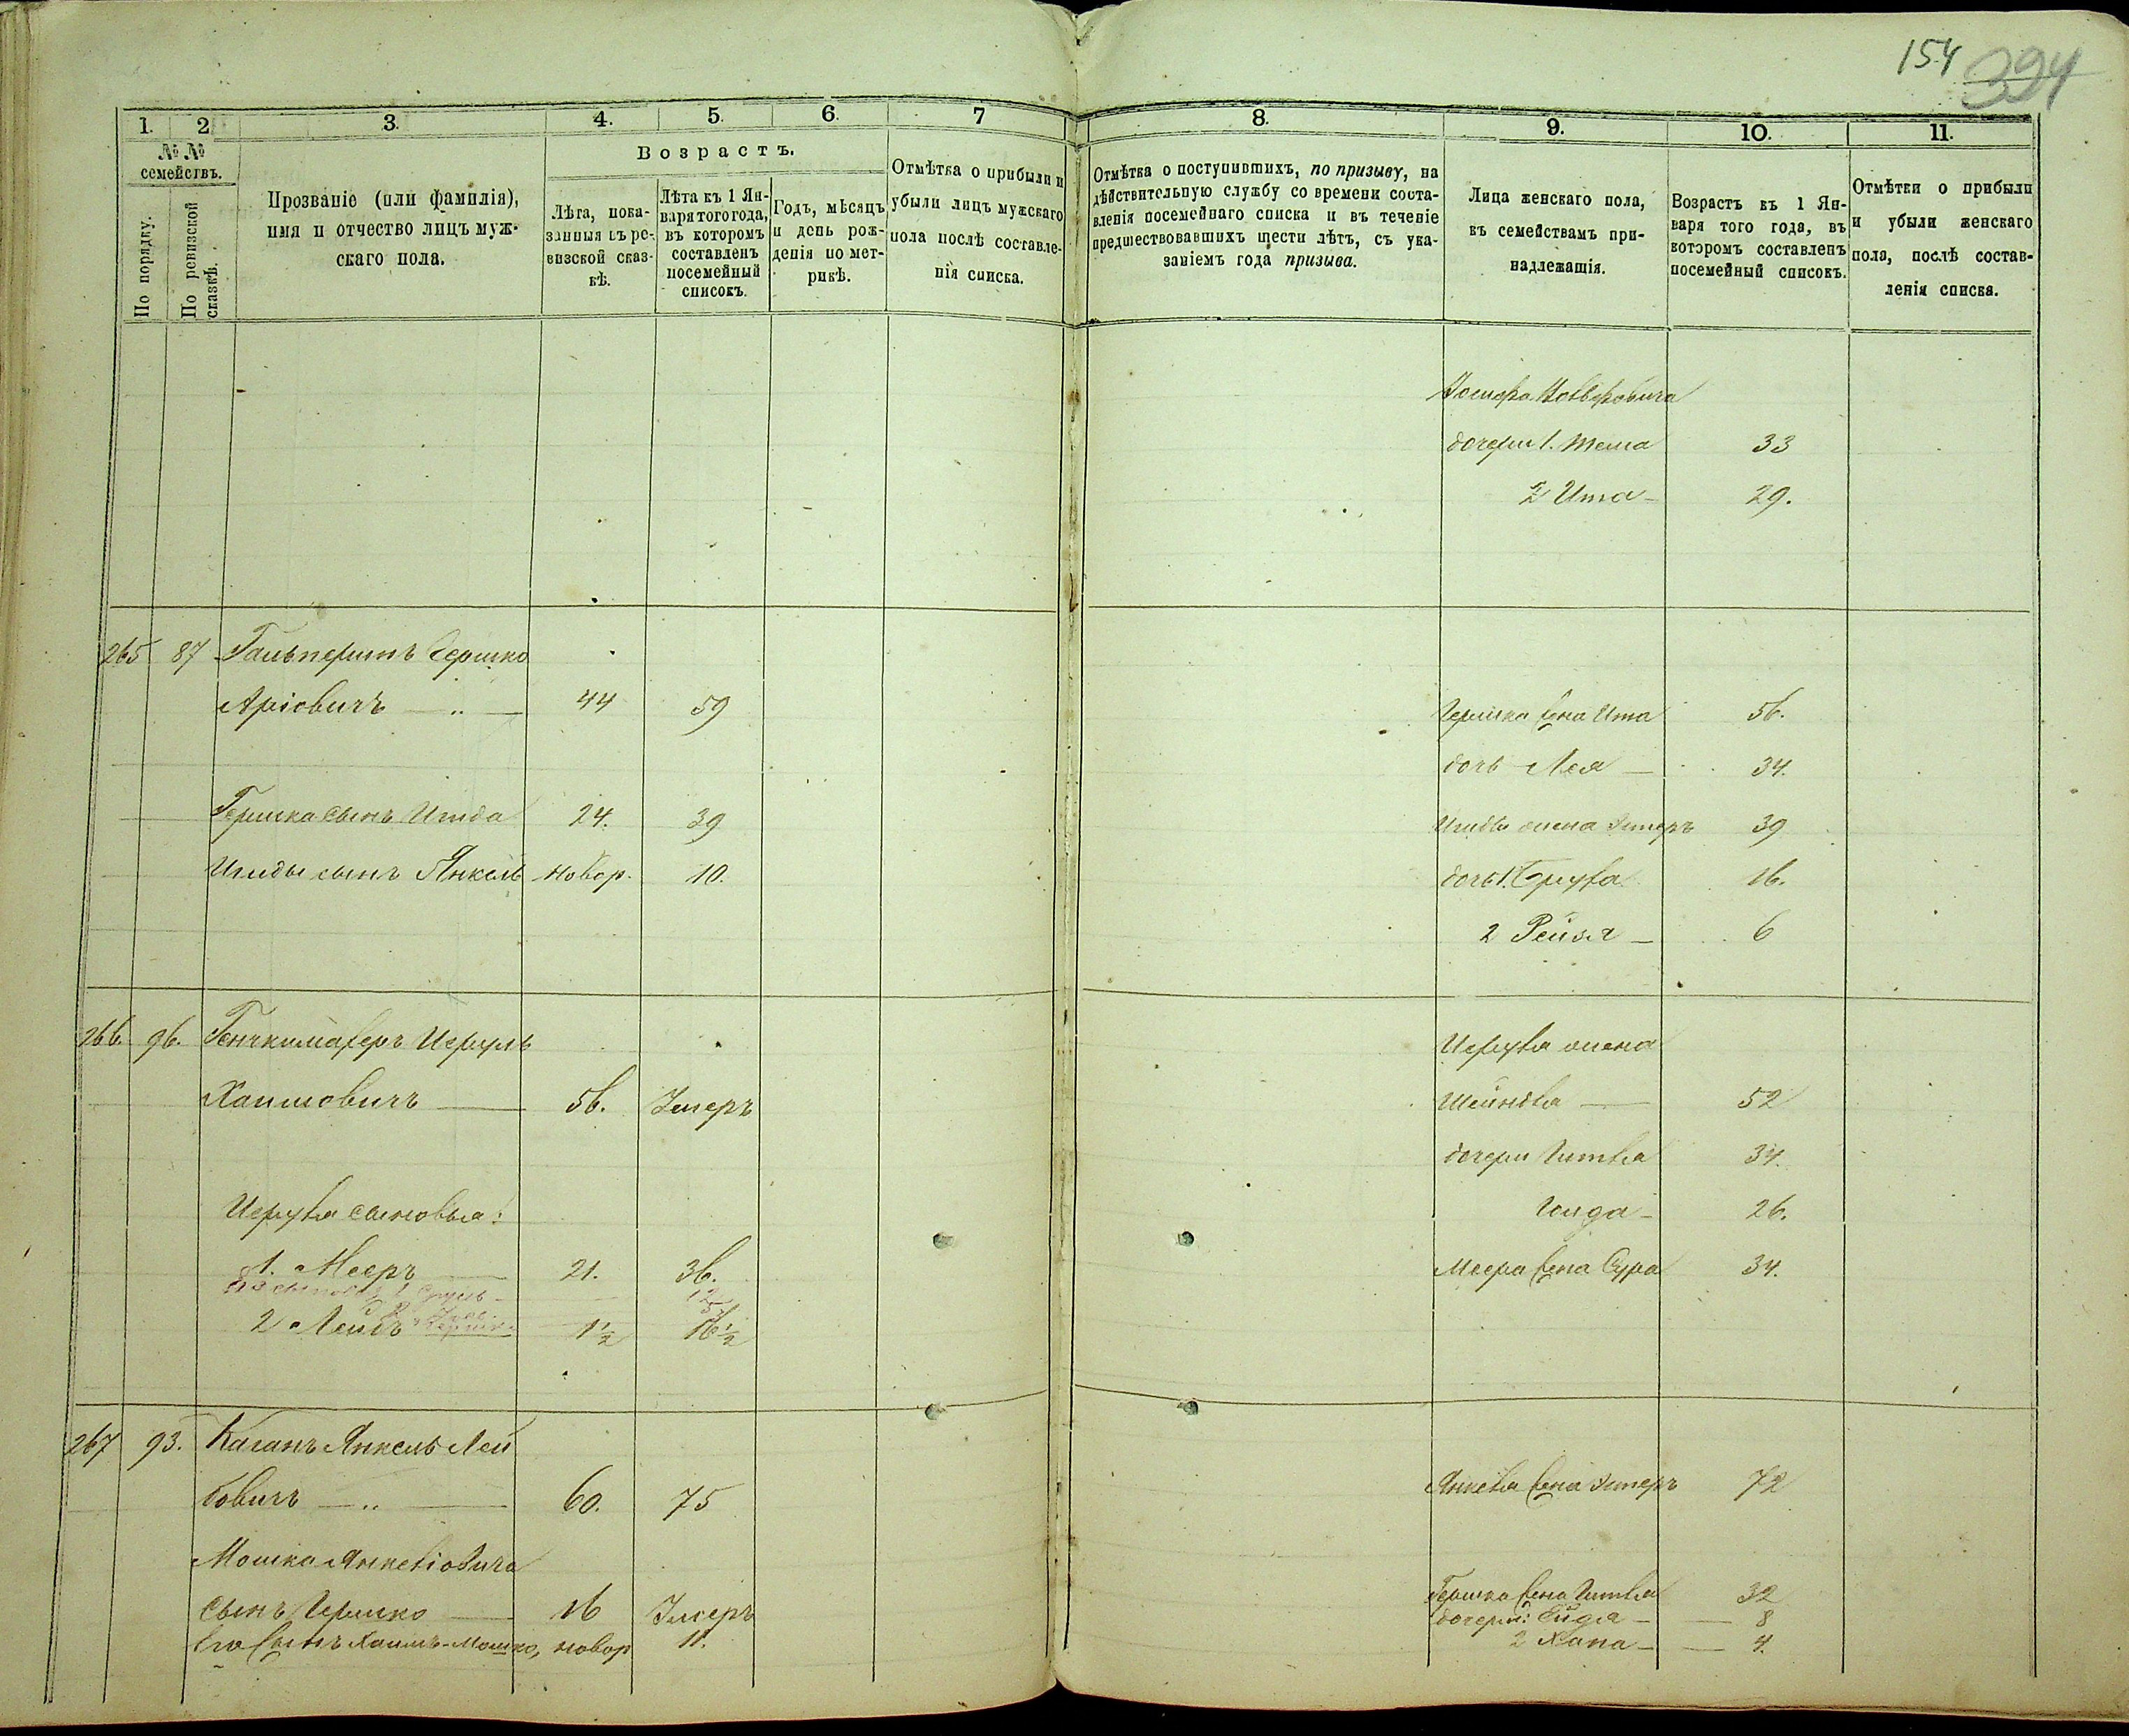 154 394
1. 2. 3. 4. 5. 6. 7 8. 9. 10. 11.
№ № семействъ.
По порядку.
По ревизской сказкѣ.
Прозваніе (или фамилія),
имя и отчество лицъ муж-
скаго пола.
Возрастъ.
Лѣта, пока-
занныя въ ре-
визской сказ-
кѣ.
Лѣта къ 1 Ян-
варя того года,
въ которомъ
составленъ
посемейный
списокъ.
Годъ, мѣсяцъ
и день рож-
денія по мет-
рикѣ.
Отмѣтка о прибыли и
убыли лицъ мужскаго
пола послѣ составле-
нія списка.
Отмѣтка о поступившихъ, по призыву, на
дѣйствительную службу со времени соста-
вленія посемейнаго списка и въ теченіе
предшествовавшихъ шести лѣтъ, съ ука-
заніемъ года призыва.
Лица женскаго пола,
къ семействамъ при-
надлежащія.
Возрастъ къ 1 Ян-
варя того года, въ
которомъ составленъ
посемейный списокъ.
Отмѣтки о прибыли
и убыли женскаго
пола, послѣ состав-
ленія списка.
дочери 1. 33
2 Ита - 29.
265 87 Гальперинъ Гершко
Аріовичъ — „ — 44 59 Гершка жена Ита 56.
дочь Лея — 34.
Гершка сынъ 24. 39 жена Эстеръ 39
сынъ Янкель новор. 10. дочь 1. 16.
2 Рейзя — 6
266. 96. Исруль Исруля жена
Хаимовичъ — 56. Умеръ 52
дочери Гитля 34.
26.
Исруля сыновья:
1. Мееръ — 21. 36. Меера жена Сура 34.
его сыновья 1 Сруль - 12
2 Лейбъ 1½ 16½
267 93. Каганъ Янкель Лей
бовичъ — „ — 60. 75 Янкеля жена Эстеръ 72
Мошка Янкеліовича
сынъ Гершко — 16 Умеръ Гершка жена Гитля 32
Его сынъ Хаимъ-Мошко, новор 11. дочери: — 8
2 Хана — 4.